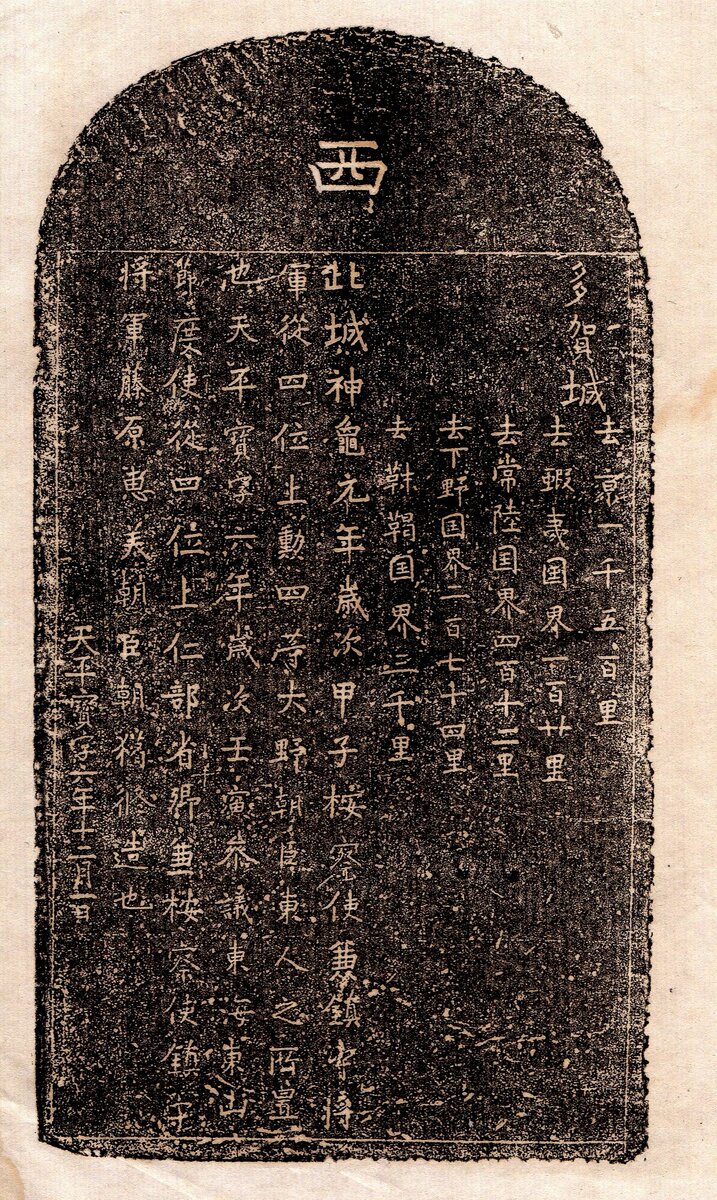 西
多賀城
去京一千五百里
去蝦夷国界一百廿里
去常陸国界四百十二里
去下野国界二百七十四里
去靺鞨国界三千里
此城神龜元年歳次甲子桉察使兼鎮守将
軍從四位上勳四等大野朝臣東人之所置
也天平寳字六年歳次壬寅參議東海東山
節度使從四位上仁部省卿兼桉察使鎮守
将軍藤原恵美朝臣朝獦修造也
天平寳字六年十二月一日